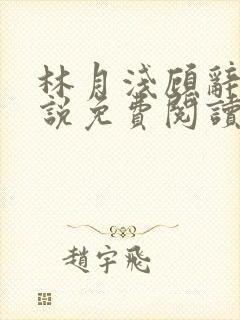 林月淺顧辭
說免費閱讀
趙宇飛